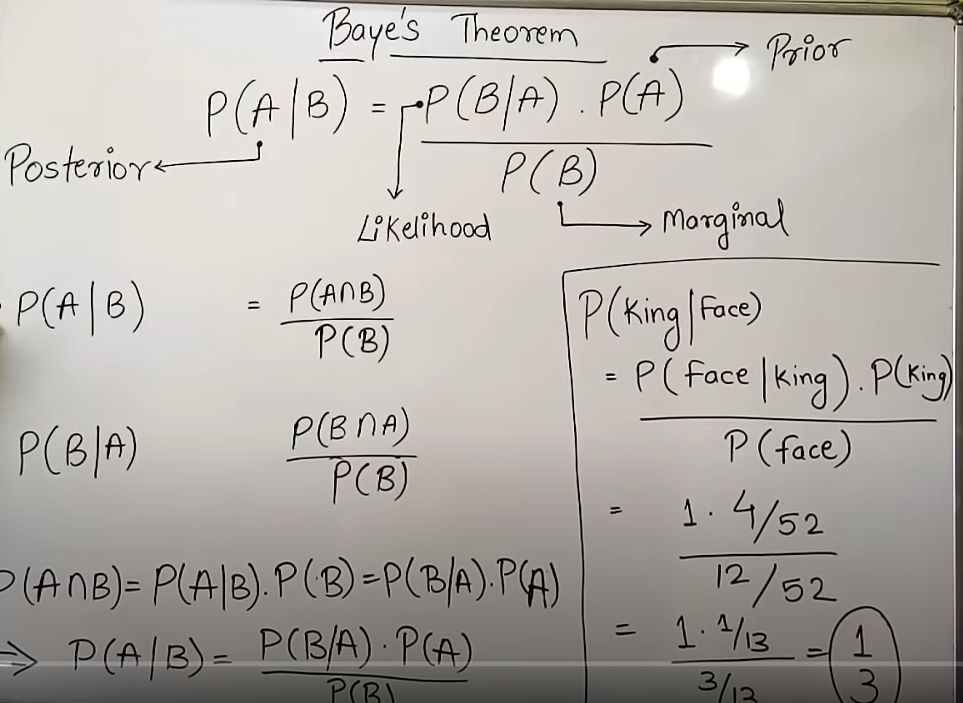 Baye's Theorem
P(A|B) = P(B/A) . P(A)
P(B)
Prior
Posterior
Likelihood
Marginal
P(A|B) = P(A∩B)
P(B)
P(B|A) P(B∩A)
P(B)
P(A∩B)= P(A|B). P(B)=P(B/A).P(A)
⇒ P(A|B)= P(B/A) . P(A)
P(B)
P(King|Face)
= P(face|King). P(King)
P(face)
= 1 . 4/52
12/52
= 1 . 1/13 = 1
3/13 3